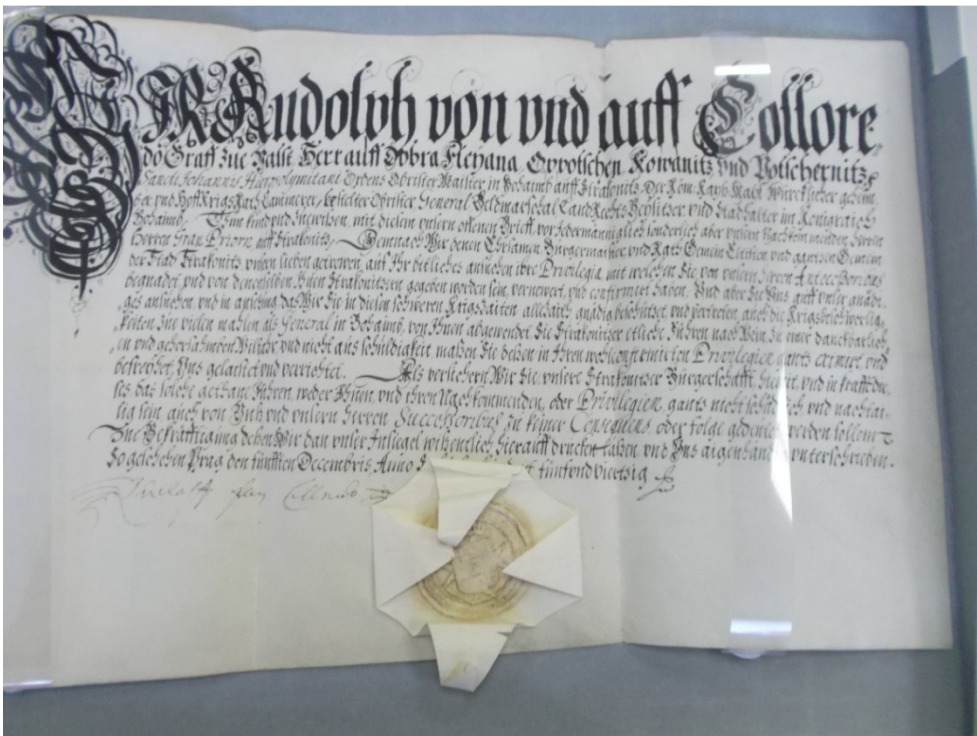 WIR Rudolph von und auff Collore,
do Graff zue Walse Herr auff Dobra Opotschen und
Sancti Johannis Hierosolymitani Ordens Obrister Maister in Behaimb auff Strakonitz, Der Röm. Kays. Maÿt. Würcklicher
und HoffKriegs Rath Cammerer, bestelter Obrister General Veldmarschal Landrechts Beÿsitzer und Stadhalter im Königreich
Behaimb, Thun kund und mit diesem unsern offenen Brieff vor Jedermänniglich sonderlich aber unsern nachkommenden Herrn
Herren Gran Priorn auff Strakonitz, Demnach Wir denen Ehrsamen Bürgermaister und Rath Gemein Eltisten und gantzen Gemein
der Stad Strakonitz unsern lieben getrewen, auf Ihr bitliches ansuchen ihre Privilegia, mit welchen Sie von unsern Herren Antecessoribus
begnadet und von denenselben Ihnen Strakonitzern gegeben worden sein, vernewert, und confirmirt haben. Und aber Sie Uns auff unser gnädi,
ges ansuchen, und in das Wir Sie in diesen schweren Krigszeiten allezeit gnädig beschützet und vertreten, auch die
Zue vielen mahlen als General in Behaimb, von Ihnen abgewendet die Strakonitzer etliche Fuhren nach Wein, zu einer danckbarlich,
en und gehorsahmen und nicht aus schuldigkeit massen Sie dessen in Ihren wohl Privilegien gants eximirt und
befreÿhet, Uns gelaistet und verrichtet. Als versichern Wir Sie unsere Strakonitzer Bürgerschafft hiemit, und in krafft die,
ses das solche gethane Fuhren, weder Ihnen, und ihren Nachkommenden, oder Privilegien, gants nicht schädlich und nachtai,
lig sein auch von Uns und unsern Herren Successoribus zu keiner Consequens oder folge werden sollen.
Zue Bekräfftigung dessen Wir dan unser Insiegel wissentlich hierauff drucken lassen, und Uns aigenhändig unterschrieben.
So geschehen Prag den fünfften Decembris Anno fünfond viertzig